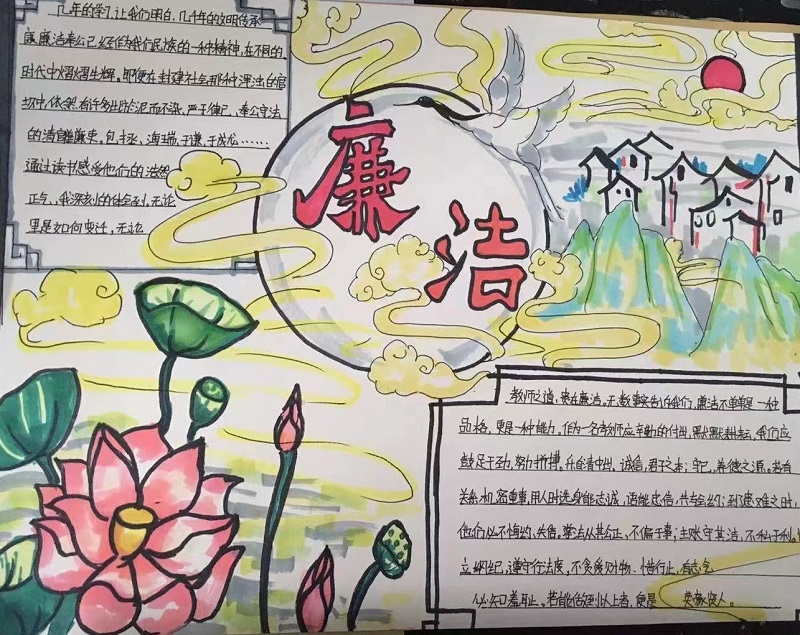 几年的学习,让我们明白,几千年的文明传承
廉洁奉公已经作为我们民族的一种精神,在不同的
时代中熠熠生辉,即便在封建社会那种浑浊的官
场中,依然有许多出淤泥而不染,严于律己,奉公守法
的清官廉吏,包拯,海瑞,于谦,于成龙……
通过读书感受他们的浩然
正气,我深刻的体会到,无论
里是如何变迁,无论
廉
洁
教师之道,贵在廉洁。无数事实告诉我们,廉洁不单单是一种
品格,更是一种能力,作为一名教师应辛勤的付出,默默耕耘,我们应
鼓足干劲,努力拼搏,
诚信,君子之本;守己,养德之源。若有
关系机密重事,用人时选身能志诚,语能忠信,共专会约;到遇难之时,
他们必不悔约,失信,
其公正,不偏于事;主账守其洁,不私于利。
立纲纪,遵守行法度,不贪爱财物,惜行止,有志气
必知羞耻。若能
以上者,便是 英豪贤人。